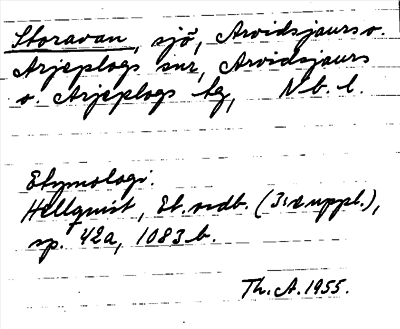 Storavan, sjö, Arvidsjaurs o.
Arjeplogs snr, Arvidsjaurs
o. Arjeplogs lg, Nb. l.
Etymologi:
Hellquist, Et. ordb. (3:e uppl.),
sp. 42a, 1083 b.
Th. A. 1955.